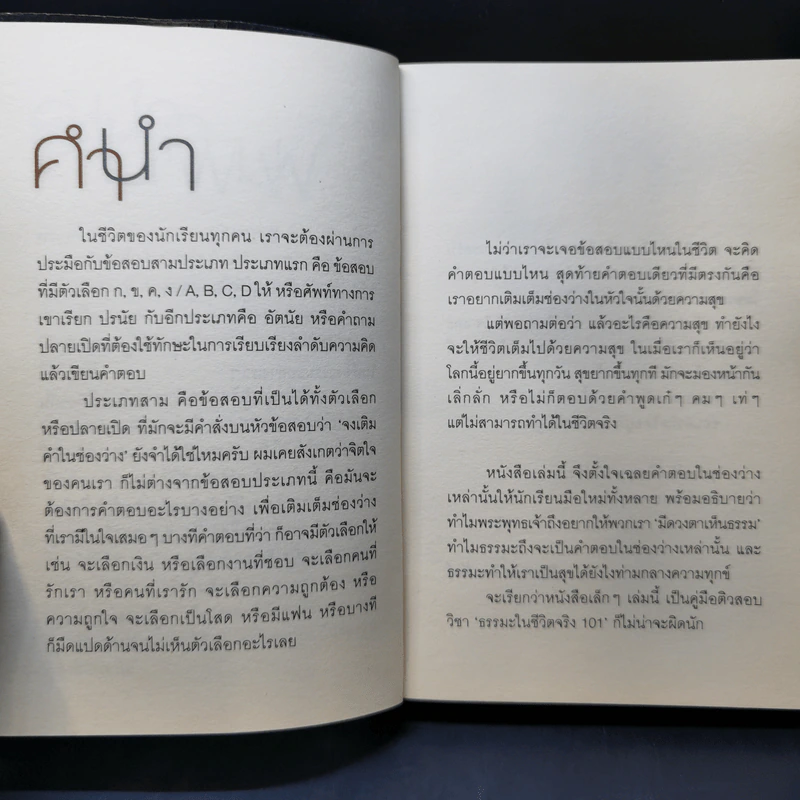 คำนำ
ในชีวิตของนักเรียนทุกคน เราจะต้องผ่านการ
ประมือกับข้อสอบสามประเภท ประเภทแรก คือ ข้อสอบ
ที่มีตัวเลือก ก, ข, ค, ง / A, B, C, D ให้ หรือศัพท์ทางการ
เขาเรียก ปรนัย กับอีกประเภทคือ อัตนัย หรือคำถาม
ปลายเปิดที่ต้องใช้ทักษะในการเรียบเรียงลำดับความคิด
แล้วเขียนคำตอบ
ประเภทสาม คือข้อสอบที่เป็นได้ทั้งตัวเลือก
หรือปลายเปิด ที่มักจะมีคำสั่งบนหัวข้อสอบว่า 'จงเติม
คำในช่องว่าง' ยังจำได้ใช่ไหมครับ ผมเคยสังเกตว่าจิตใจ
ของคนเรา ก็ไม่ต่างจากข้อสอบประเภทนี้ คือมันจะ
ต้องการคำตอบอะไรบางอย่าง เพื่อเติมเต็มช่องว่าง
ที่เรามีในใจเสมอๆ บางทีคำตอบที่ว่า ก็อาจมีตัวเลือกให้
เช่น จะเลือกเงิน หรือเลือกงานที่ชอบ จะเลือกคนที่
รักเรา หรือคนที่เรารัก จะเลือกความถูกต้อง หรือ
ความถูกใจ จะเลือกเป็นโสด หรือมีแฟน หรือบางที
ก็มืดแปดด้านจนไม่เห็นตัวเลือกอะไรเลย
ไม่ว่าเราจะเจอข้อสอบแบบไหนในชีวิต จะคิด
คำตอบแบบไหน สุดท้ายคำตอบเดียวที่มีตรงกันคือ
เราอยากเติมเต็มช่องว่างในหัวใจนั้นด้วยความสุข
แต่พอถามต่อว่า แล้วอะไรคือความสุข ทำยังไง
จะให้ชีวิตเต็มไปด้วยความสุข ในเมื่อเราก็เห็นอยู่ว่า
โลกนี้อยู่ยากขึ้นทุกวัน สุขยากขึ้นทุกที มักจะมองหน้ากัน
เลิ่กลั่ก หรือไม่ก็ตอบด้วยคำพูดเก๋ๆ คมๆ เท่ๆ
แต่ไม่สามารถทำได้ในชีวิตจริง
หนังสือเล่มนี้ จึงตั้งใจเฉลยคำตอบในช่องว่าง
เหล่านั้นให้นักเรียนมือใหม่ทั้งหลาย พร้อมอธิบายว่า
ทำไมพระพุทธเจ้าถึงอยากให้พวกเรา 'มีดวงตาเห็นธรรม'
ทำไมธรรมะถึงจะเป็นคำตอบในช่องว่างเหล่านั้น และ
ธรรมะทำให้เราเป็นสุขได้ยังไงท่ามกลางความทุกข์
จะเรียกว่าหนังสือเล็กๆ เล่มนี้ เป็นคู่มือติวสอบ
วิชา 'ธรรมะในชีวิตจริง 101' ก็ไม่น่าจะผิดนัก